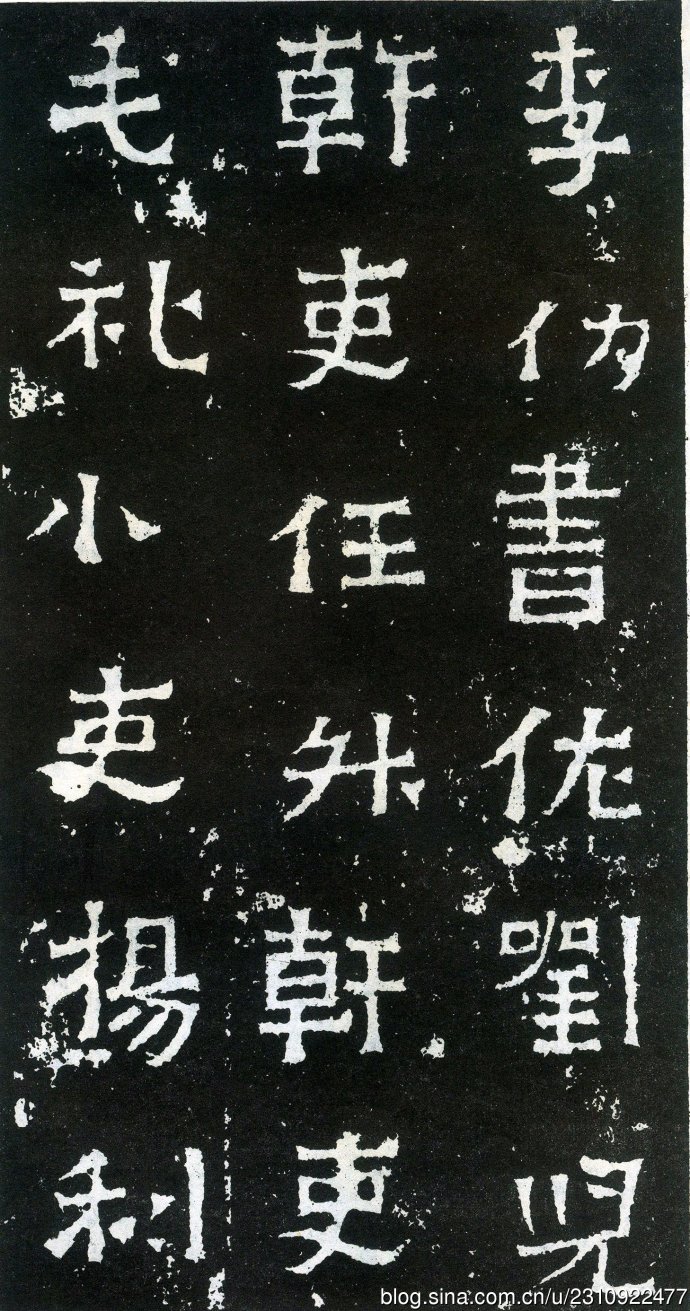 李書佐劉
幹吏任升幹吏
毛礼小吏揚利
blog.sina.com.cn/u/2310922477